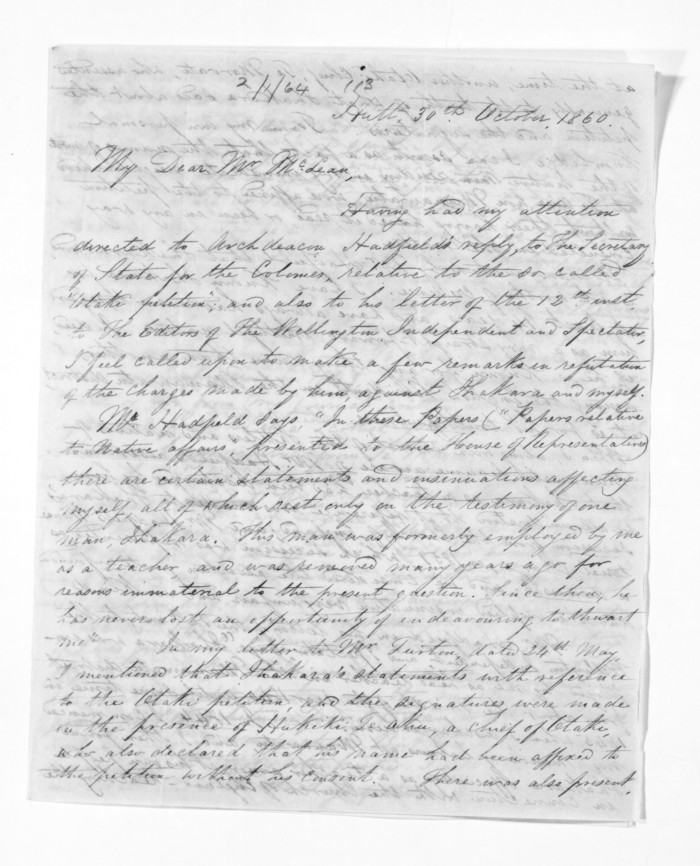 2/11/64 113
Hutt. 30th October. 1860.
My Dear Mr McLean,
Having had my attention
directed to Archdeacon Hadfield's reply, to The Secretary
of State for the Colonies, relative to the so called
"Otaki petition", and also to his letter of the 12th inst.
to The Editors of The Wellington Independent and Spectator,
I feel called upon to make a few remarks in refutation
of the charges made by him, against Ihakara and myself.
Mr Hadfield says, "In these Papers ("Papers relative
to Native affairs", presented to the House of Representatives)
there are certain statements and insinuations affecting
myself, all of which rest only on the testimony of one
man, Ihakara. This man was formerly employed by me
as a teacher and was removed many years ago for
reasons immaterial to the present question. Since then, he
has never lost an opportunity of endeavouring to thwart
me".
In my letter to Mr Turton, dated 24th May,
I mentioned that Ihakara's statements with reference
to the Otaki petition, and the signatures, were made
in the presence of Hukiki Te Ahu, a chief of Otaki,
who also declared that his name had been affixed to
the petition without his consent. There was also present,